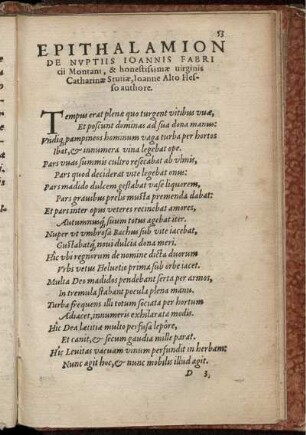 53
EPITHALAMION
DE NVPTIIS IOANNIS FABRI
tii Montani, & honestissimæ uirginis
Catharinæ Stutiæ, Ioanne Alto Hes-
so authore.
Tempus erat plenæ quo turgent vitibus vuæ,
Et poscunt dominas ad sua dona manus:
Vndiq; pampineos hominum vaga turba per hortos
Ibat, & innumera vina legebat ope.
Pars vuas summis cultro resecabat ab vlmis,
Pars quod deciderat vite legebat onus:
Pars madido dulcem gestabat vase liquorem,
Pars grauibus prelis musta premenda dabat:
Et pars inter opus veteres recinebat amores,
Autumnusq; suum totus agebat iter.
Nuper vt vmbrosa Bachus sub vite iacebat,
Gustabatq; noui dulcia dona meri.
Hic vbi regnorum de nomine dicta duorum
Vrbi vetus Heluetio prima sub orbe iacet.
Multa Deo madidi pendebant serta per armos,
In tremula stabant pocula plena manu.
Turba frequens illi totum sociata per hortum
Adiacet, innumeris exhilarata modis.
Hic Dea lætitiæ multo perfusa lepôre,
Et canit, & secum gaudia mille parat.
Hic Leuitas vacuam vinum perfundit in herbam:
Nunc agit hoc, & nunc mobilis illud agit.
D 3.